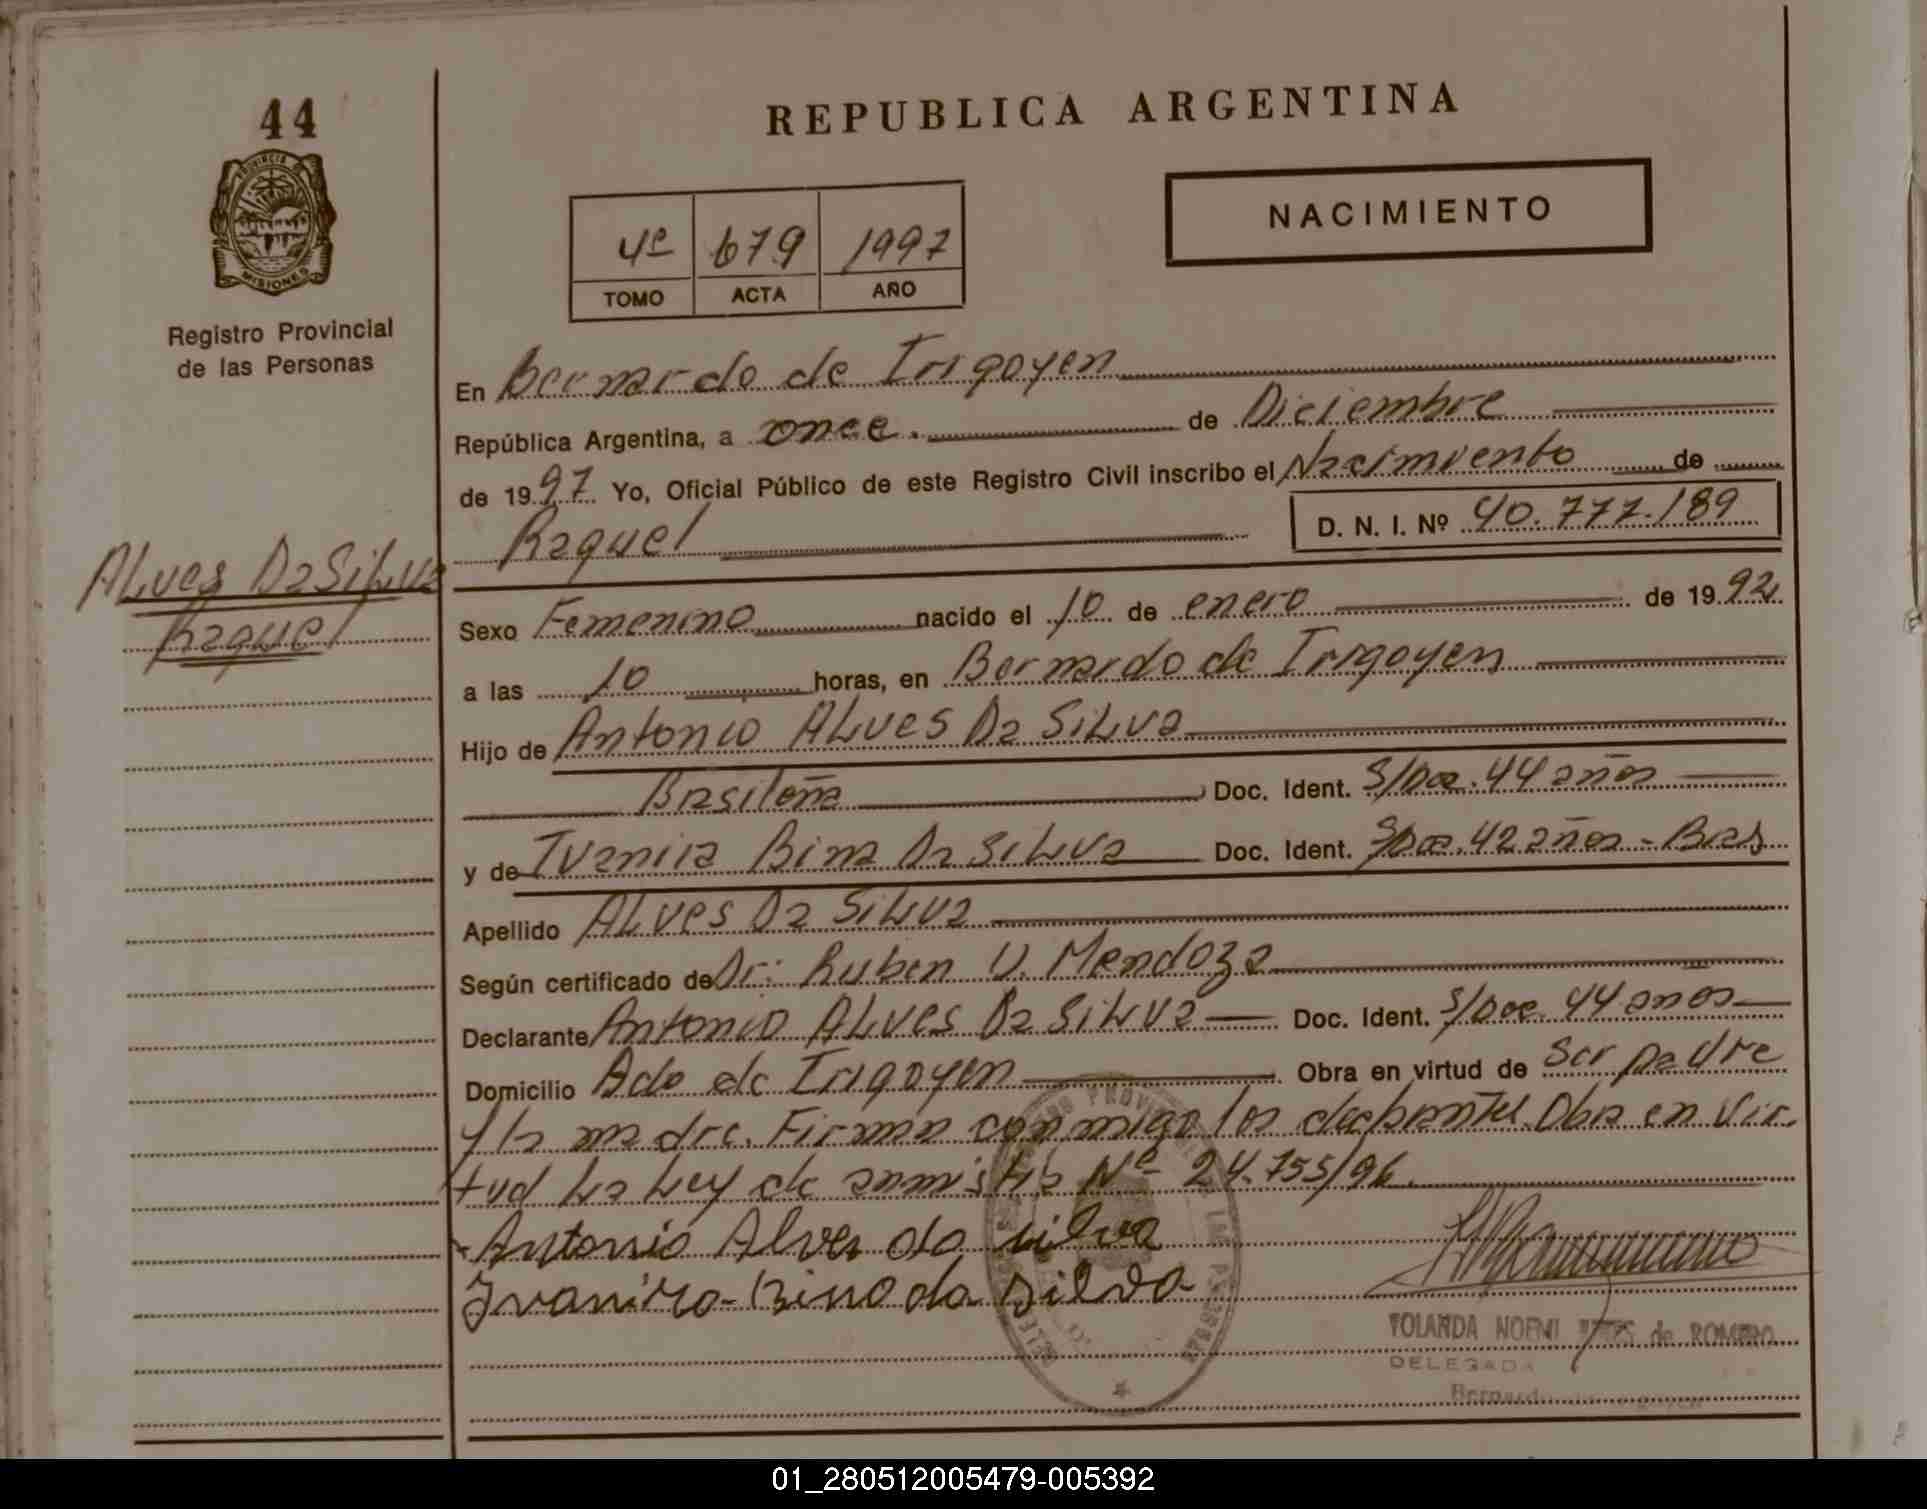 44
REPUBLICA ARGENTINA
PROVINCIA DE
MISIONES
Registro Provincial
de las Personas
4º 679 1997
TOMO ACTA AÑO
NACIMIENTO
En Bernardo de Irigoyen
República Argentina, a once. de Diciembre
de 1997 Yo, Oficial Público de este Registro Civil inscribo el Nacimiento de
Raquel D. N. I. Nº 40.777.189
Alves Da Silva
Raquel
Sexo Femenino nacido el 10 de enero de 1992
a las 10 horas, en Bernardo de Irigoyen
Hijo de Antonio ALves Da SiLva
Brasileña Doc. Ident. S/Doc. 44 años
y de Ivanira Bina Da SiLva Doc. Ident. S/Doc. 42 años - Bras
Apellido ALves Da SiLva
Según certificado de Dr: Ruben V. Mendoza
Declarante Antonio ALves Da SiLva Doc. Ident. S/Doc. 44 anos
Domicilio Bdo de Irigoyen Obra en virtud de Ser padre
y la madre. Firman conmigo los declarantes. Obra en vir-
tud La Ley de amnistia Nº 24.755/96.
Antonio Alves da silva
Ivanira Bino da silva
YOLANDA NOEMI de ROMERO
DELEGADA
01_280512005479-005392